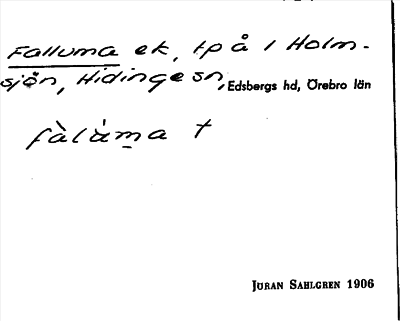 Falluma ek, tp å i Holm-
sjön, Hidinge sn, Edsbergs hd, Örebro län
fàlàm̲a †
JÖRAN SAHLGREN 1906